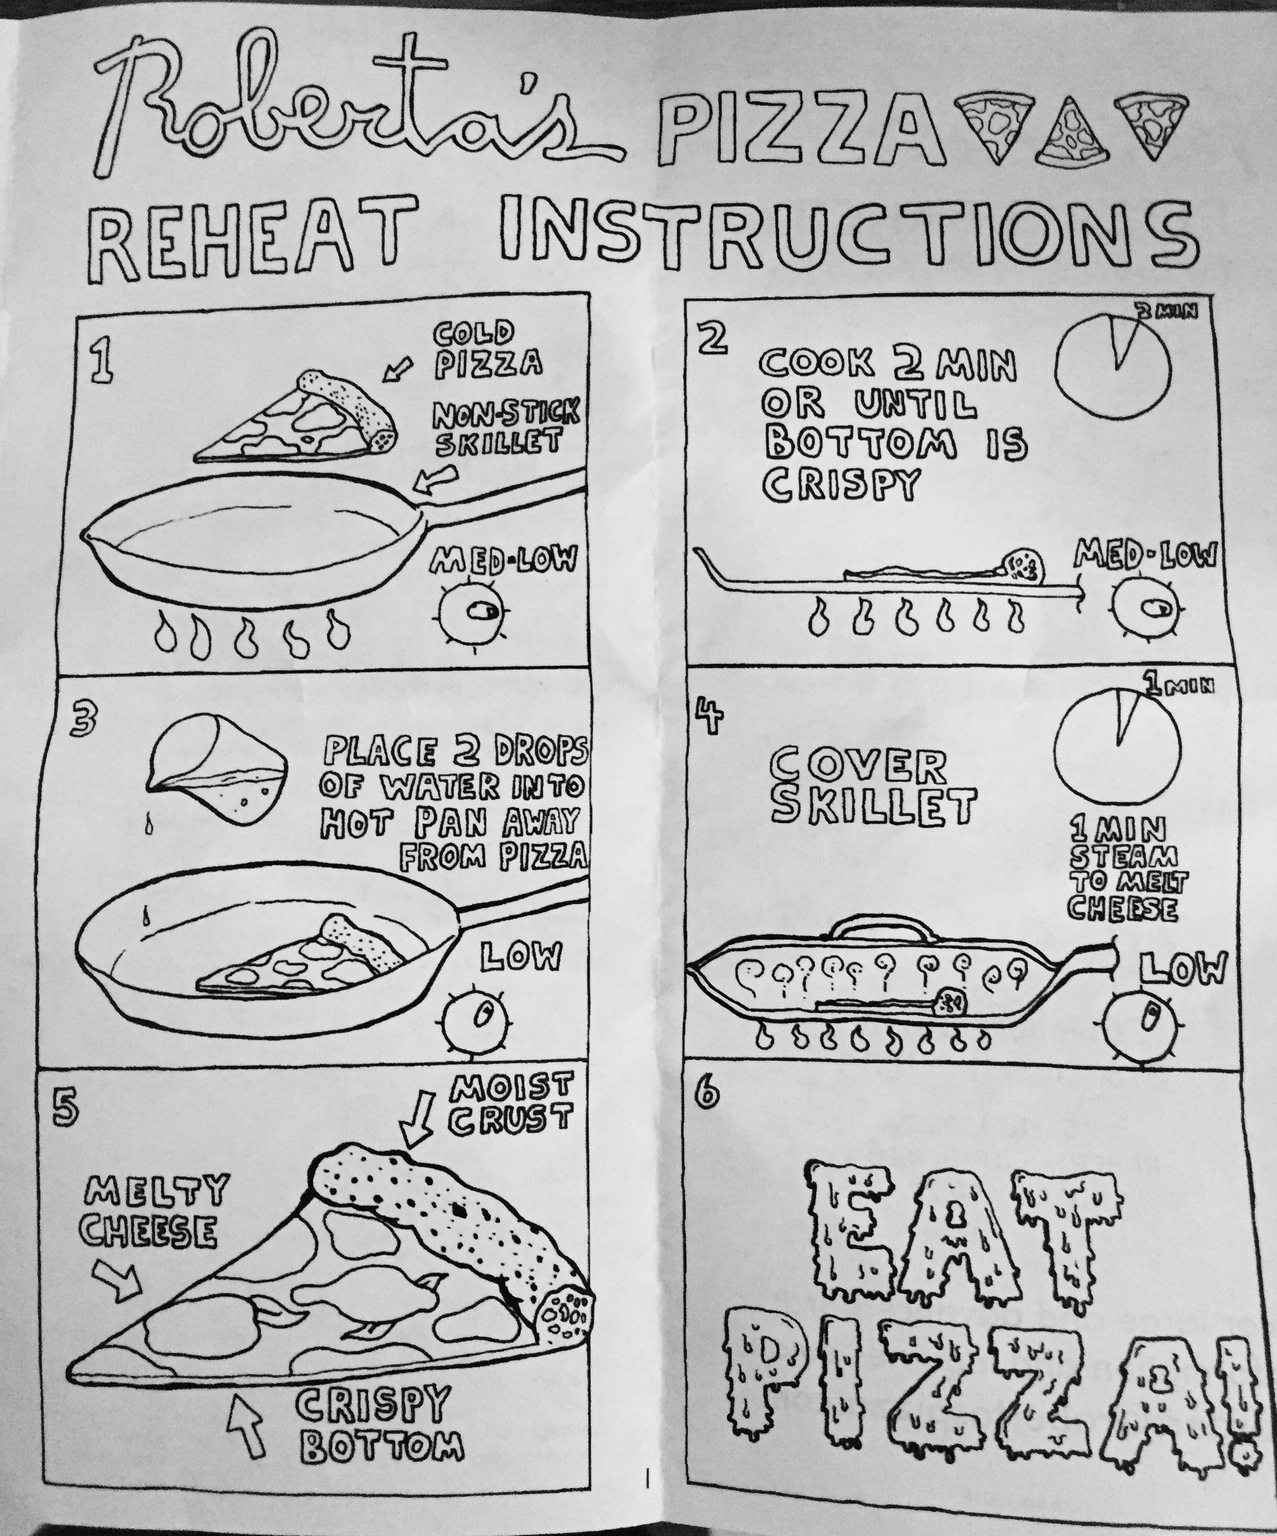 Roberta's PIZZA
REHEAT INSTRUCTIONS
1
COLD
PIZZA
NON-STICK
SKILLET
MED-LOW
2
2 MIN
COOK 2 MIN
OR UNTIL
BOTTOM IS
CRISPY
MED-LOW
3
PLACE 2 DROPS
OF WATER INTO
HOT PAN AWAY
FROM PIZZA
LOW
4
1 MIN
COVER
SKILLET
1 MIN
STEAM
TO MELT
CHEESE
LOW
5
MOIST
CRUST
MELTY
CHEESE
CRISPY
BOTTOM
6
EAT
PIZZA!